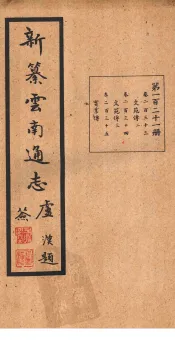 新纂雲南通志
盧漢題
簽
第一百二十一冊
卷二百三十三
文苑傳二
卷二百三十四
文苑傳三
卷二百三十五